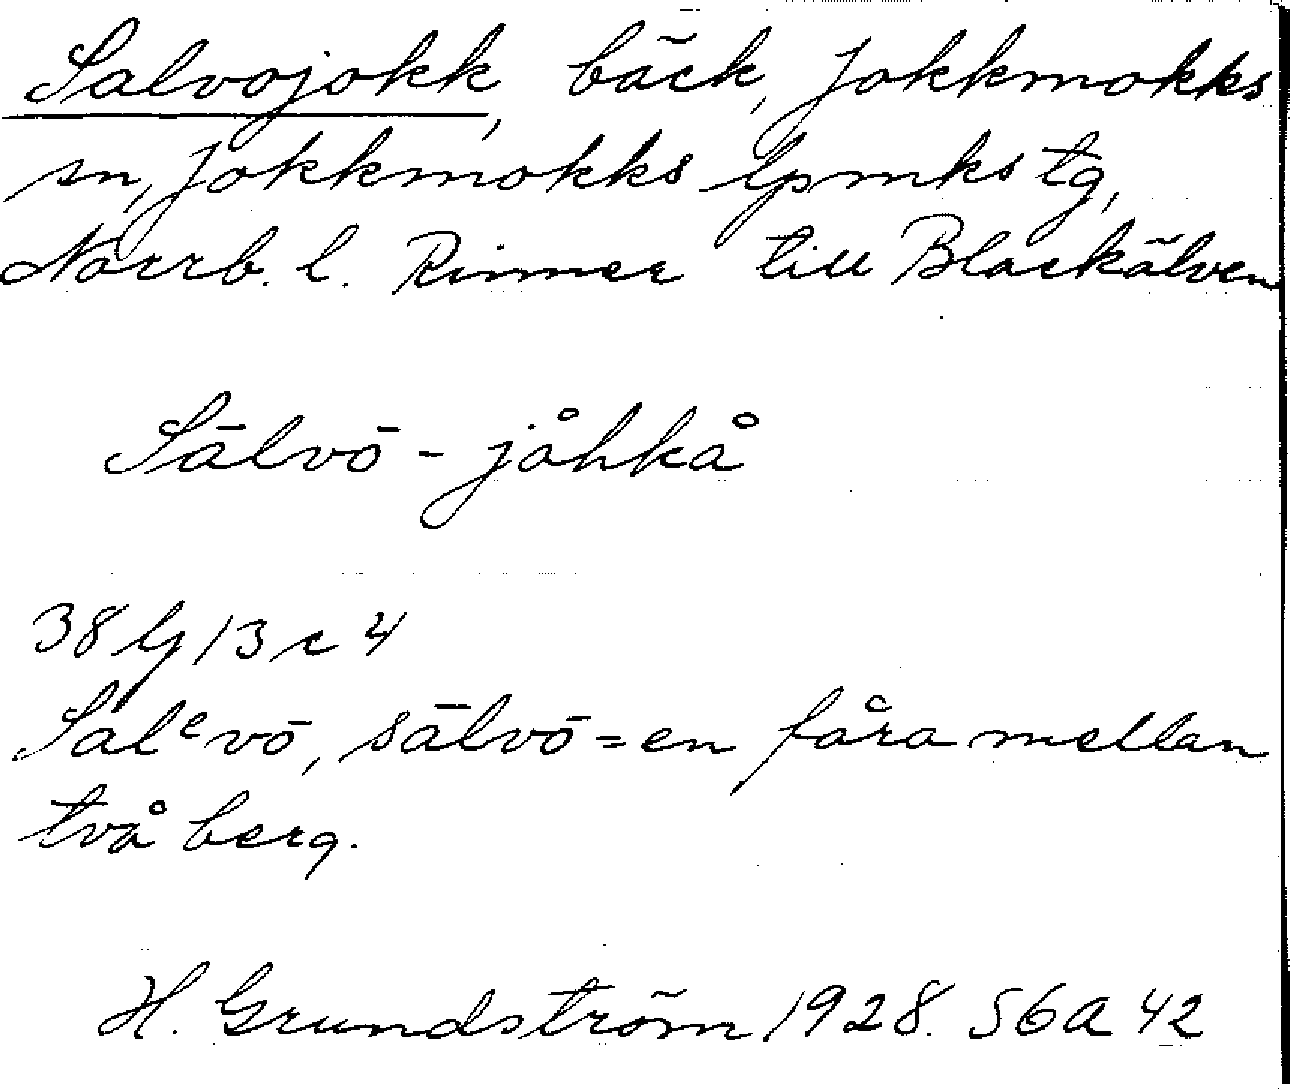 Salvojokk, bäck, Jokkmokks
sn, Jokkmokks lpmks tg,
Norrb. l. Rinner till Blackälven
Sālvō - jåhkå
38 G 13 c 4
Salᵉvō, sālvō = en fåra mellan
två berg.
H. Grundström 1928. S6a 42